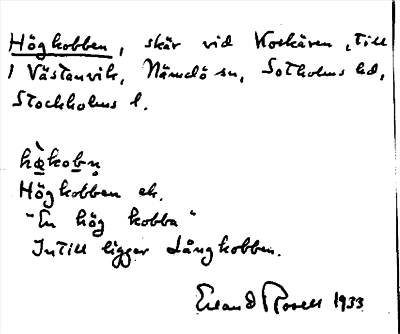 Högkobben, skär vid Korkären, till
1 Västanvik, Nämdö sn, Sotholms hd,
Stockholms l.
hø̀kobn̥
Högkobben ek.
"En hög kobba"
Intill ligger Långkobben.
Erland Rosell 1933